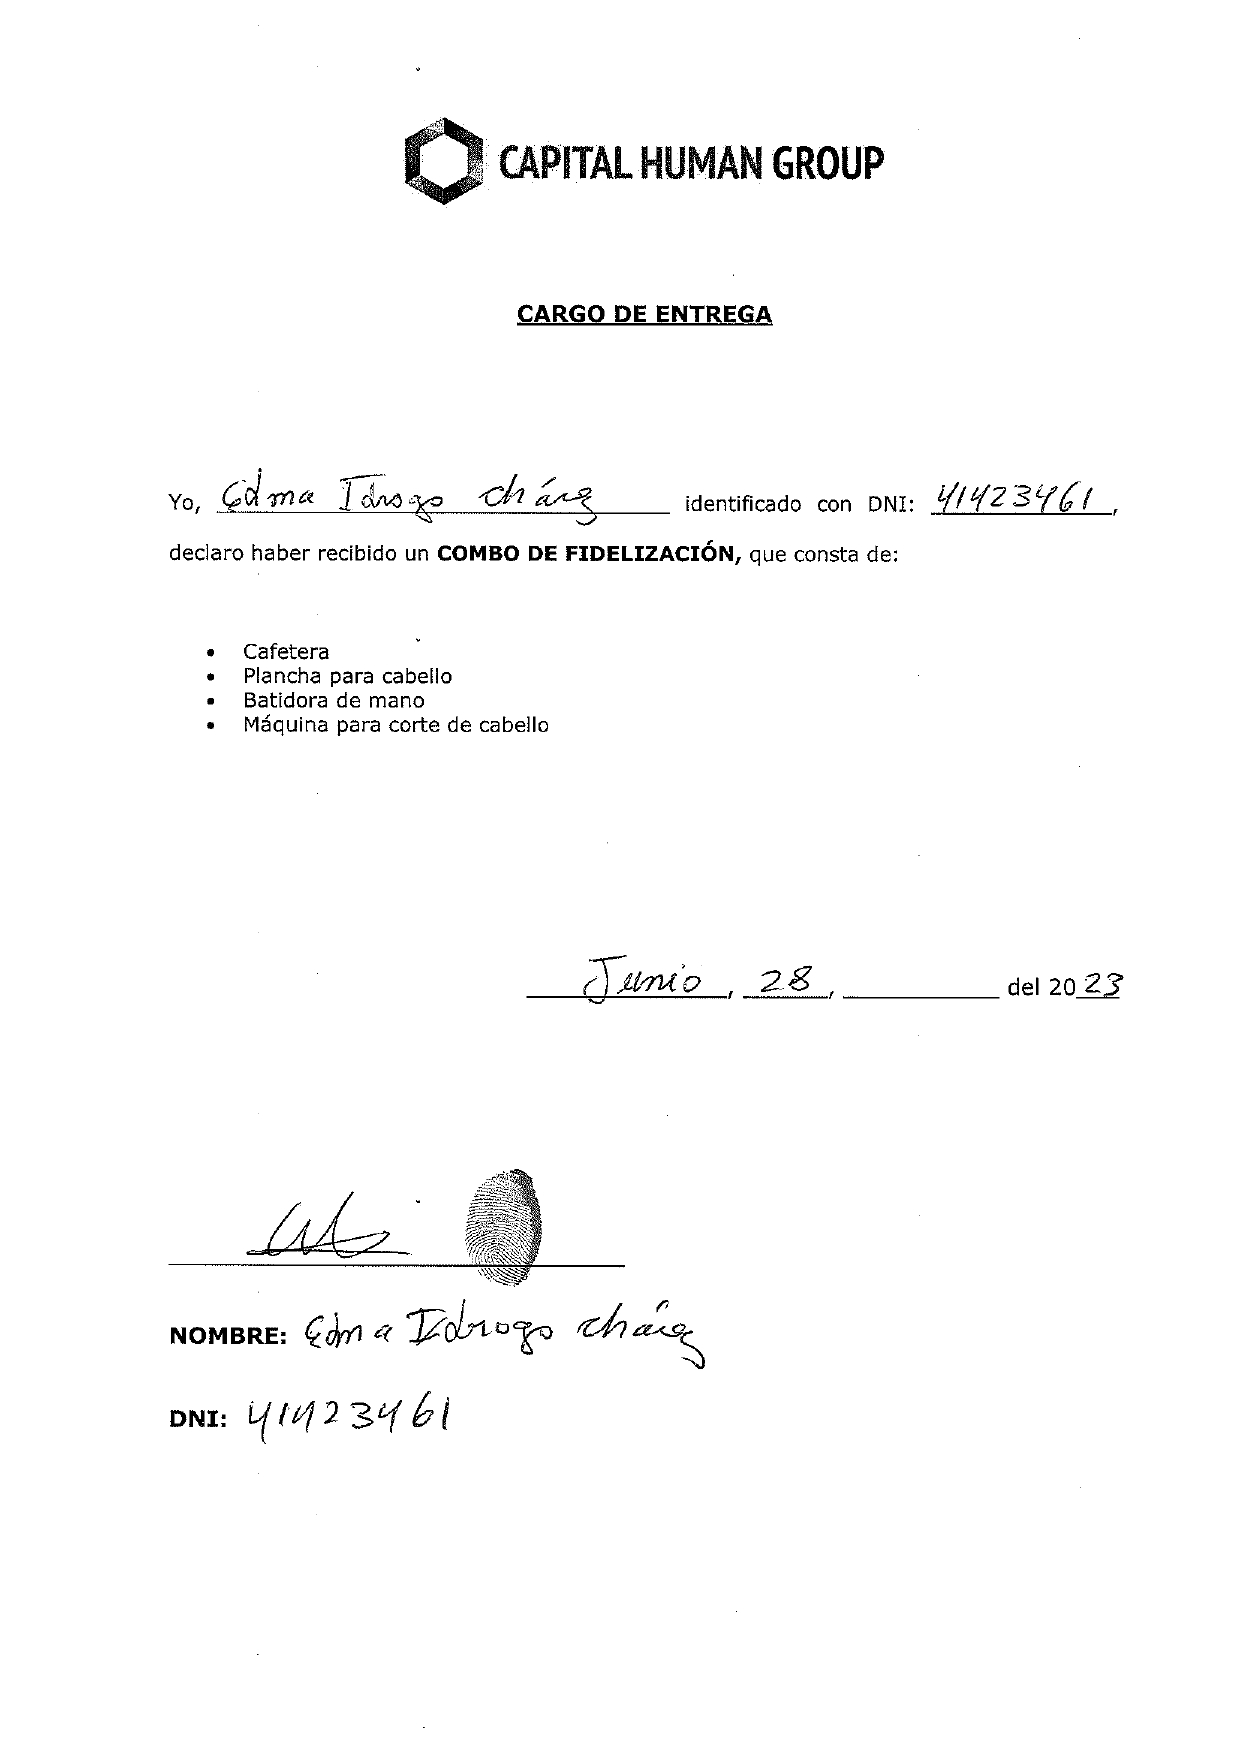 CAPITAL HUMAN GROUP
CARGO DE ENTREGA
Yo, Edma Idrogo cháng identificado con DNI: 41423461,
declaro haber recibido un COMBO DE FIDELIZACIÓN, que consta de:
• Cafetera
• Plancha para cabello
• Batidora de mano
• Máquina para corte de cabello
Junio, 28, del 2023
NOMBRE: Edma Idrogo cháng
DNI: 41423461